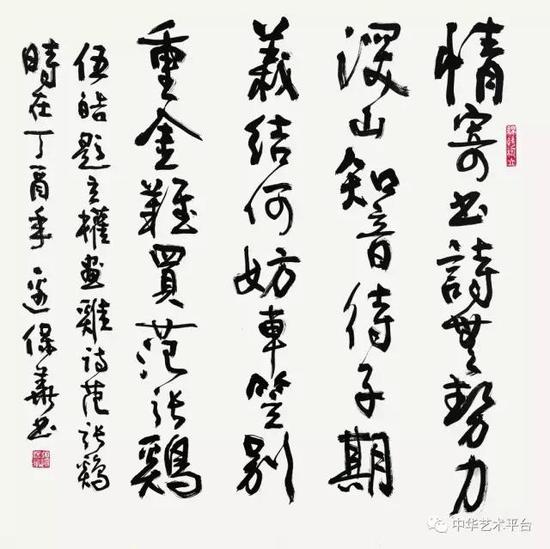 情寄书詩無勢力
深山知音待子期
義結何妨車笠別
重金難買范张鷄
伍皓題主權畫雞诗范张鷄
時在丁酉年 边保華书
中华艺术平台